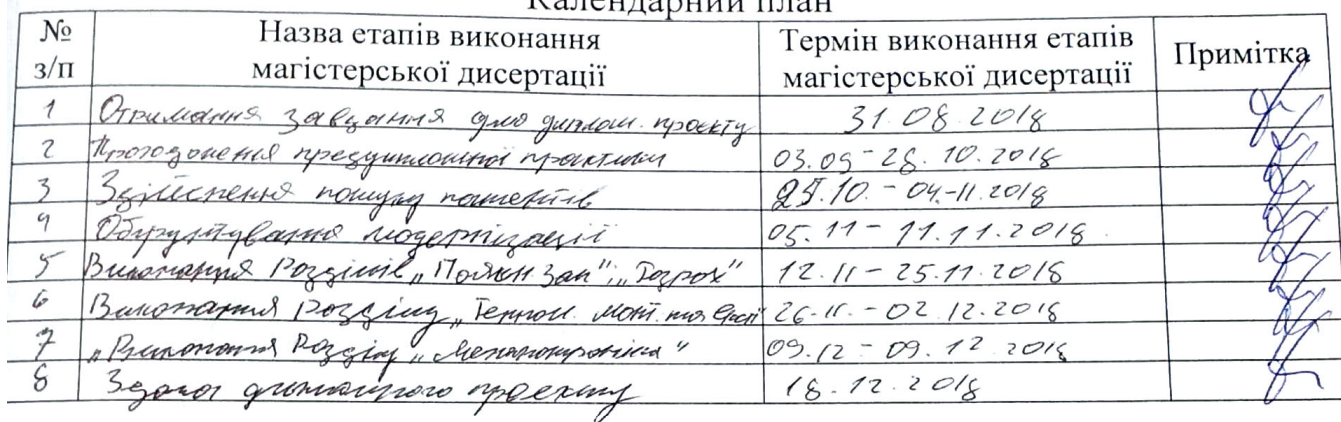 Календарний план
№ з/п Назва етапів виконання магістерської дисертації Термін виконання етапів магістерської дисертації Примітка
1 Отримання завдання диплом. проєкту 31.08.2018
2 Проходження преддипломної практики 03.09-28.10.2018
3 Здійснення пошуку патентів .10. - 04.11.2018
4 Обґрунтування модернізації 05.11 - 11.11.2018
5 Виконання Розділів 12.11 - 25.11.2018
6 Виконання Розділу 26.11. - 02.12.2018
7 „Виконання Розділу 09.12 - 09.12.2018
8 Здача дипломного проекту 18.12.2018